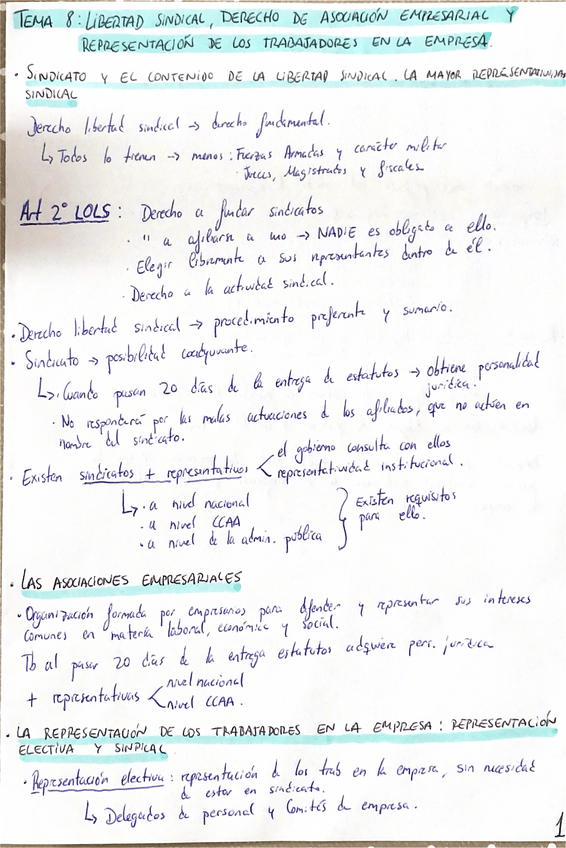 TEMA 8: LIBERTAD SINDICAL, DERECHO DE ASOCIACIÓN EMPRESARIAL Y
REPRESENTACIÓN DE LOS TRABAJADORES EN LA EMPRESA.
· SINDICATO Y EL CONTENIDO DE LA LIBERTAD SINDICAL. LA MAYOR REPRESENTATIVIDAD
SINDICAL
Derecho libertad sindical → derecho fundamental.
↳ Todos lo tienen → menos: Fuerzas Armadas y carácter militar
· Jueces, Magistrados y fiscales
Art 2º LOLS: Derecho a fundar sindicatos
· " a afiliarse a uno → NADIE es obligado a ello.
· Elegir libremente a sus representantes dentro de él.
· Derecho a la actividad sindical.
· Derecho libertad sindical → procedimiento preferente y sumario.
· Sindicato → posibilidad coadyuvante.
↳ · Cuando pasan 20 días de la entrega de estatutos → obtiene personalidad
jurídica.
· No responderá por las malas actuaciones d los afiliados, que no actúen en
nombre del sindicato.
· Existen sindicatos + representativos < el gobierno consulta con ellos
representatividad institucional.
↳ · a nivel nacional
· a nivel CCAA
· a nivel de la admin. pública
} Existen requisitos
para ello.
· LAS ASOCIACIONES EMPRESARIALES
· Organización formada por empresarios para defender y representar sus intereses
comunes en materia laboral, económica y social.
Tb al pasar 20 días de la entrega estatutos adquiere pers. jurídica
+ representativas < nivel nacional
nivel CCAA.
· LA REPRESENTACIÓN DE LOS TRABAJADORES EN LA EMPRESA: REPRESENTACIÓN
ELECTIVA Y SINDICAL
· Representación electiva: representación d los trab en la empresa, sin necesidad
d estar en sindicato.
↳ Delegados de personal y Comités d empresa.
1